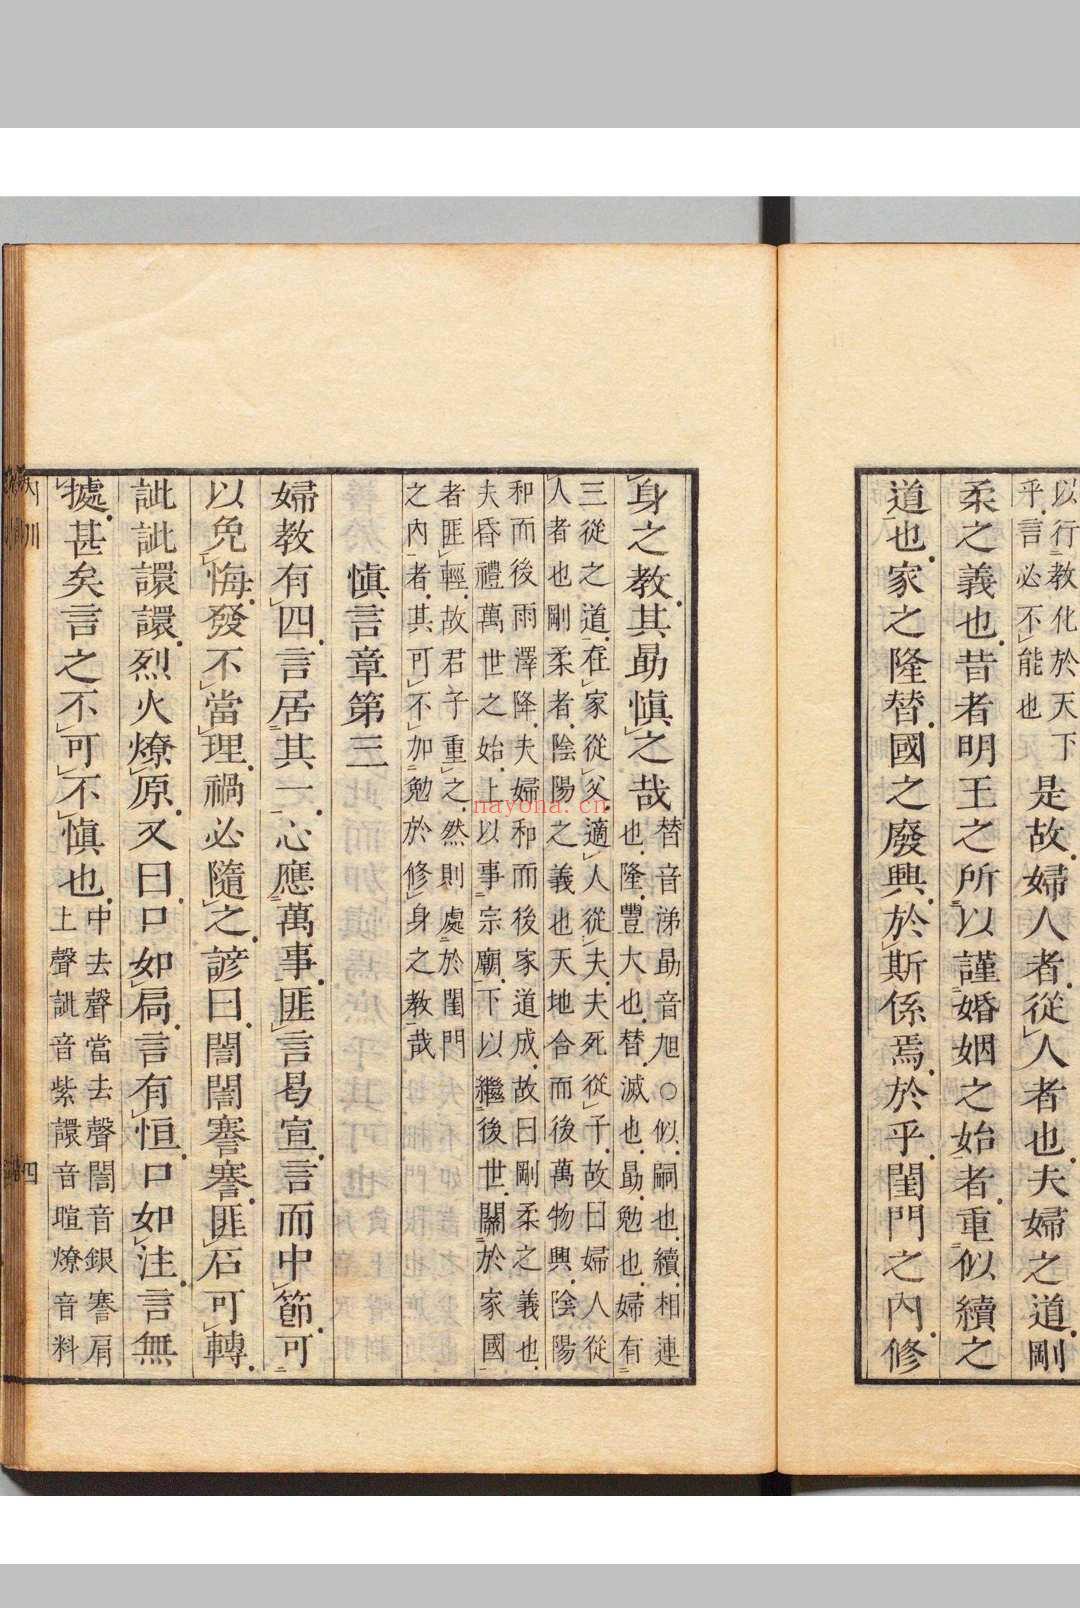 以行教化於天下
乎言必不能也
是故婦人者從人者也夫婦之道剛
柔之義也昔者明王之所以謹婚姻之始者重似續之
道也家之隆替國之廢興於斯係焉於乎閨門之內修
身之教其勗慎之哉
替音涕勗音旭○似嗣也續相連
也隆豐大也替滅也勗勉也婦有
三從之道在家從父適人從夫夫死從子故曰婦人從
人者也剛柔者陰陽之義也天地合而後萬物興陰陽
和而後雨澤降夫婦和而後家道成故曰剛柔之義也
夫昏禮萬世之始上以事宗廟下以繼後世關於家國
者匪輕故君子重之然則處於閨門
之內者其可不加勉於修身之教哉
慎言章第三
婦教有四言居其一心應萬事匪言曷宣言而中節可
以免悔發不當理禍必隨之諺曰誾誾謇謇匪石可轉
訿訿譞譞烈火燎原又曰口如扃言有恒口如注言無
據甚矣言之不可不慎也
中去聲當去聲誾音銀謇肩
上聲訿音紫譞音暄燎音料
四
nayona.cn